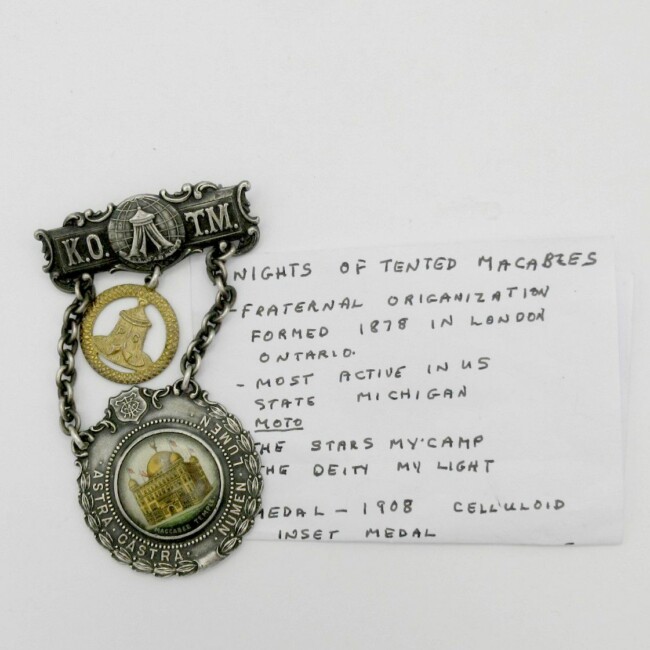 K.O. T.M.
NIGHTS OF TENTED MACABEES
-FRATERNAL ORIGANIZATION
FORMED 1878 IN LONDON
ONTARIO.
- MOST ACTIVE IN US
STATE MICHIGAN
MOTO
HE STARS MY CAMP
HE DEITY MY LIGHT
MEDAL - 1908 CELLULOID
INSET MEDAL
ASTRA CASTRA · NUMEN LUMEN
MACCABEE TEMPLE